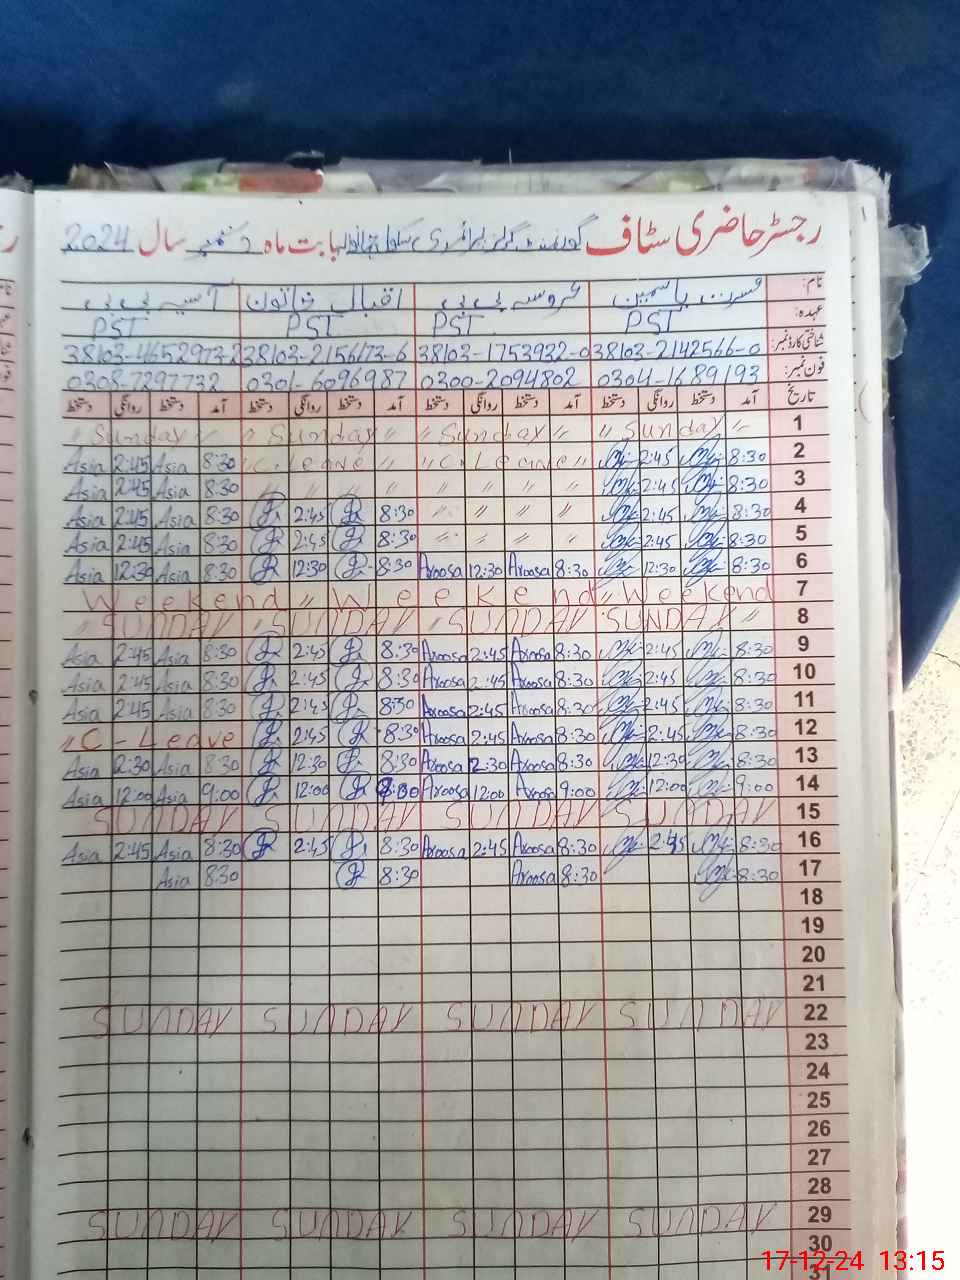 رجسٹر حاضری سٹاف گورنمنٹ گرلز پرائمری سکول بابت ماہ دسمبر سال 2024
نام: مسرت یاسمین عروسہ بی بی اقبال خاتون آسیہ بی بی
عہدہ: PST PST PST PST
شناختی کارڈ نمبر: 38103-2142566-0 38103-1753932-0 38103-2156173-6 38103-4652973-2
فون نمبر: 0304-1689193 0300-2094802 0301-6096987 0308-7297732
تاریخ آمد دستخط روانگی دستخط آمد دستخط روانگی دستخط آمد دستخط روانگی دستخط آمد دستخط روانگی دستخط
〃 Sunday 〃 〃 Sunday 〃 〃 Sunday 〃 〃 Sunday 〃 1
Asia 2:45 Asia 8:30 〃 C. Leave 〃 〃 C. Leave 〃 2:45 8:30 2
Asia 2:45 Asia 8:30 〃 〃 〃 〃 〃 〃 〃 〃 2:45 8:30 3
Asia 2:45 Asia 8:30 2:45 8:30 〃 〃 〃 〃 2:45 8:30 4
Asia 2:45 Asia 8:30 2:45 8:30 〃 〃 〃 〃 2:45 8:30 5
Asia 12:30 Asia 8:30 12:30 8:30 Aroosa 12:30 Aroosa 8:30 12:30 8:30 6
Weekend 〃 Weekend 〃 Weekend 7
〃 SUNDAY 〃 SUNDAY 〃 SUNDAY SUNDAY 〃 8
Asia 2:45 Asia 8:30 2:45 8:30 Aroosa 2:45 Aroosa 8:30 2:45 8:30 9
Asia 2:45 Asia 8:30 2:45 8:30 Aroosa 2:45 Aroosa 8:30 2:45 8:30 10
Asia 2:45 Asia 8:30 2:45 8:30 Aroosa 2:45 Aroosa 8:30 2:45 8:30 11
〃 C - Leave 2:45 8:30 Aroosa 2:45 Aroosa 8:30 2:45 8:30 12
Asia 2:30 Asia 8:30 12:30 8:30 Aroosa 2:30 Aroosa 8:30 12:30 8:30 13
Asia 12:00 Asia 9:00 12:00 Aroosa 12:00 Aroosa 9:00 12:00 9:00 14
SUNDAY SUNDAY SUNDAY SUNDAY 15
Asia 2:45 Asia 8:30 2:45 8:30 Aroosa 2:45 Aroosa 8:30 2:45 8:30 16
Asia 8:30 8:30 Aroosa 8:30 8:30 17
18
19
20
21
SUNDAY SUNDAY SUNDAY SUNDAY 22
23
24
25
26
27
28
SUNDAY SUNDAY SUNDAY SUNDAY 29
30
31
17-12-24 13:15